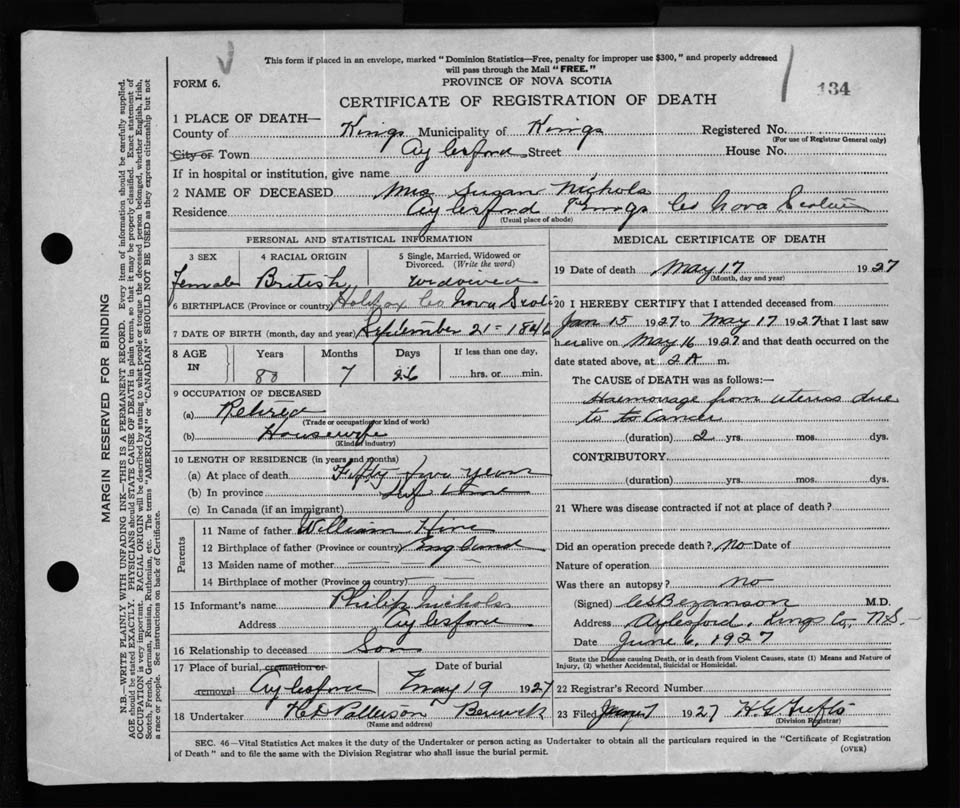 This form if placed in an envelope, marked "Dominion Statistics—Free, penalty for improper use $300," and properly addressed
will pass through the Mail "FREE."
FORM 6.
PROVINCE OF NOVA SCOTIA
134
CERTIFICATE OF REGISTRATION OF DEATH
1 PLACE OF DEATH—
County of Kings Municipality of Kings Registered No.
(For use of Registrar General only)
City or Town Aylesford Street House No.
If in hospital or institution, give name
2 NAME OF DECEASED Mrs Susan Nichols
Residence Aylesford Kings Co Nova Scotia
(Usual place of abode)
PERSONAL AND STATISTICAL INFORMATION
3 SEX 4 RACIAL ORIGIN 5 Single, Married, Widowed or Divorced. (Write the word)
Female British Widowed
6 BIRTHPLACE (Province or country) Halifax Co Nova Scoti
7 DATE OF BIRTH (month, day and year) September 21-1846
8 AGE IN Years Months Days If less than one day,
80 7 26 hrs. or min.
9 OCCUPATION OF DECEASED
(a) Retired
(Trade or occupation or kind of work)
(b) Housewife
(Kind of industry)
10 LENGTH OF RESIDENCE (in years and months)
(a) At place of death Fifty five years
(b) In province Life time
(c) In Canada (if an immigrant)
Parents
11 Name of father William Hine
12 Birthplace of father (Province or country) England
13 Maiden name of mother — — —
14 Birthplace of mother (Province or country) — — —
15 Informant's name Philip Nichols
Address Aylesford
16 Relationship to deceased Son
17 Place of burial, cremation or removal Date of burial
Aylesford May 19 1927
18 Undertaker H D Patterson Berwick
(Name and address)
MEDICAL CERTIFICATE OF DEATH
19 Date of death May 17 1927
(Month, day and year)
20 I HEREBY CERTIFY that I attended deceased from
Jan 15 1927 to May 17 1927 that I last saw
her alive on May 16 1927 and that death occurred on the
date stated above, at 2 A m.
The CAUSE of DEATH was as follows:—
Haemorrage from uterus due
to to Cancer
(duration) 2 yrs. mos. dys.
CONTRIBUTORY
(duration) yrs. mos. dys.
21 Where was disease contracted if not at place of death?
Did an operation precede death? No Date of
Nature of operation
Was there an autopsy? no
(Signed) Bezanson M.D.
Address Aylesford, Kings Co, N.S.—
Date June 6, 1927
State the Disease causing Death, or in death from Violent Causes, state (1) Means and Nature of
Injury, (2) whether Accidental, Suicidal or Homicidal.
22 Registrar's Record Number
23 Filed June 7 1927 H. G.
(Division Registrar)
SEC. 46—Vital Statistics Act makes it the duty of the Undertaker or person acting as Undertaker to obtain all the particulars required in the "Certificate of Registration
of Death" and to file the same with the Division Registrar who shall issue the burial permit.
(OVER)
MARGIN RESERVED FOR BINDING
N.B.—WRITE PLAINLY WITH UNFADING INK—THIS IS A PERMANENT RECORD. Every item of information should be carefully supplied.
AGE should be stated EXACTLY. PHYSICIANS should STATE CAUSE OF DEATH in plain terms, so that it may be properly classified. Exact statement of
OCCUPATION is very important. RACIAL ORIGIN will be described by stating to what people or tongue the deceased person belonged, whether English, Irish,
Scotch, French, German, Russian, Ruthenian, etc. The terms "AMERICAN" or "CANADIAN" SHOULD NOT BE USED as they express citizenship but not
a race or people. See instructions on back of Certificate.